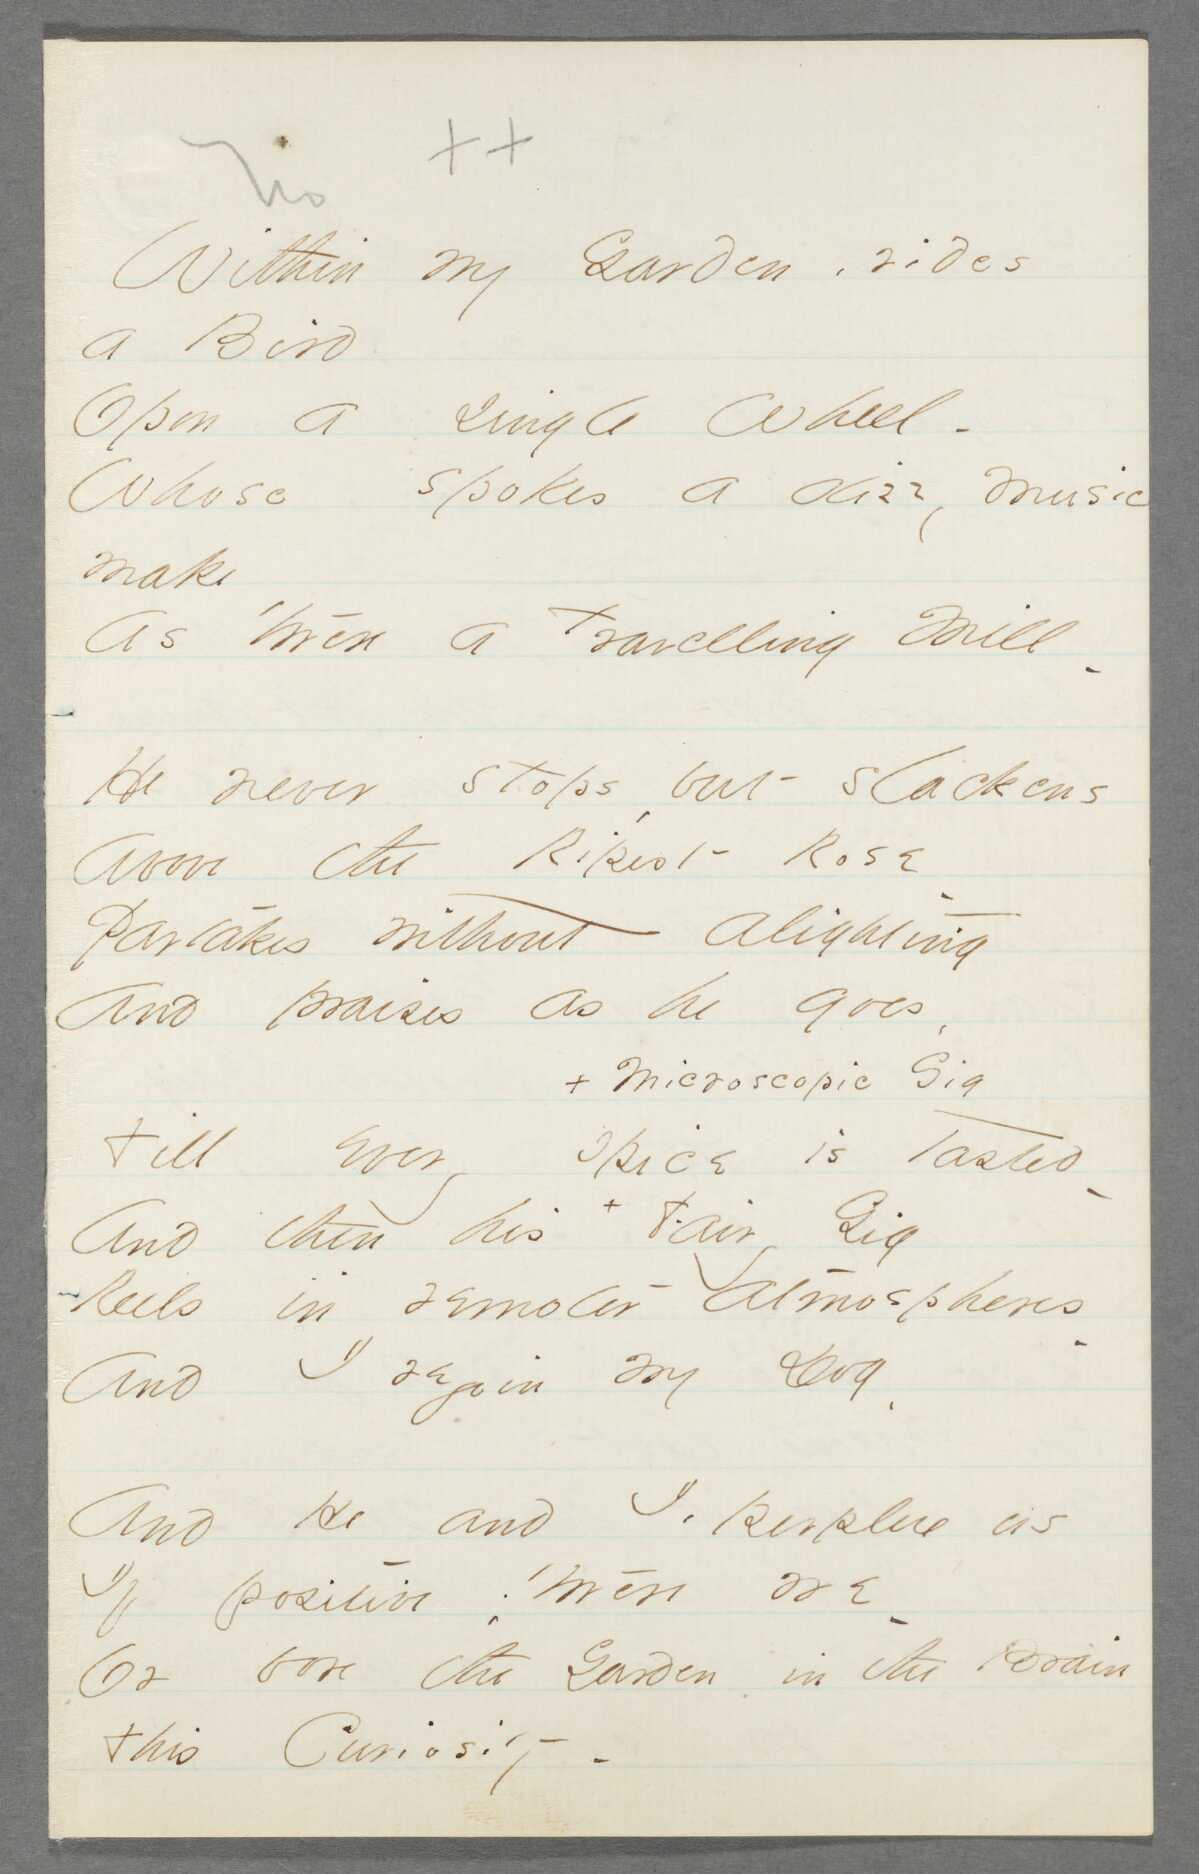 No ++
Within my Garden, rides
a Bird
Opon a single Wheel -
Whose spokes a dizzy music
make
As 'twere a travelling Mill -
He never stops, but slackens
Above the Ripest Rose -
Partakes without alighting
And praises as he goes,
+ Microscopic Gig
Till every spice is tasted -
And then his + Fairy Gig
Reels in remoter atmospheres -
And I rejoin my Dog,
And He and I, perplex us
If positive, 'twere we -
Or bore the Garden in the Brain
This Curiosity -